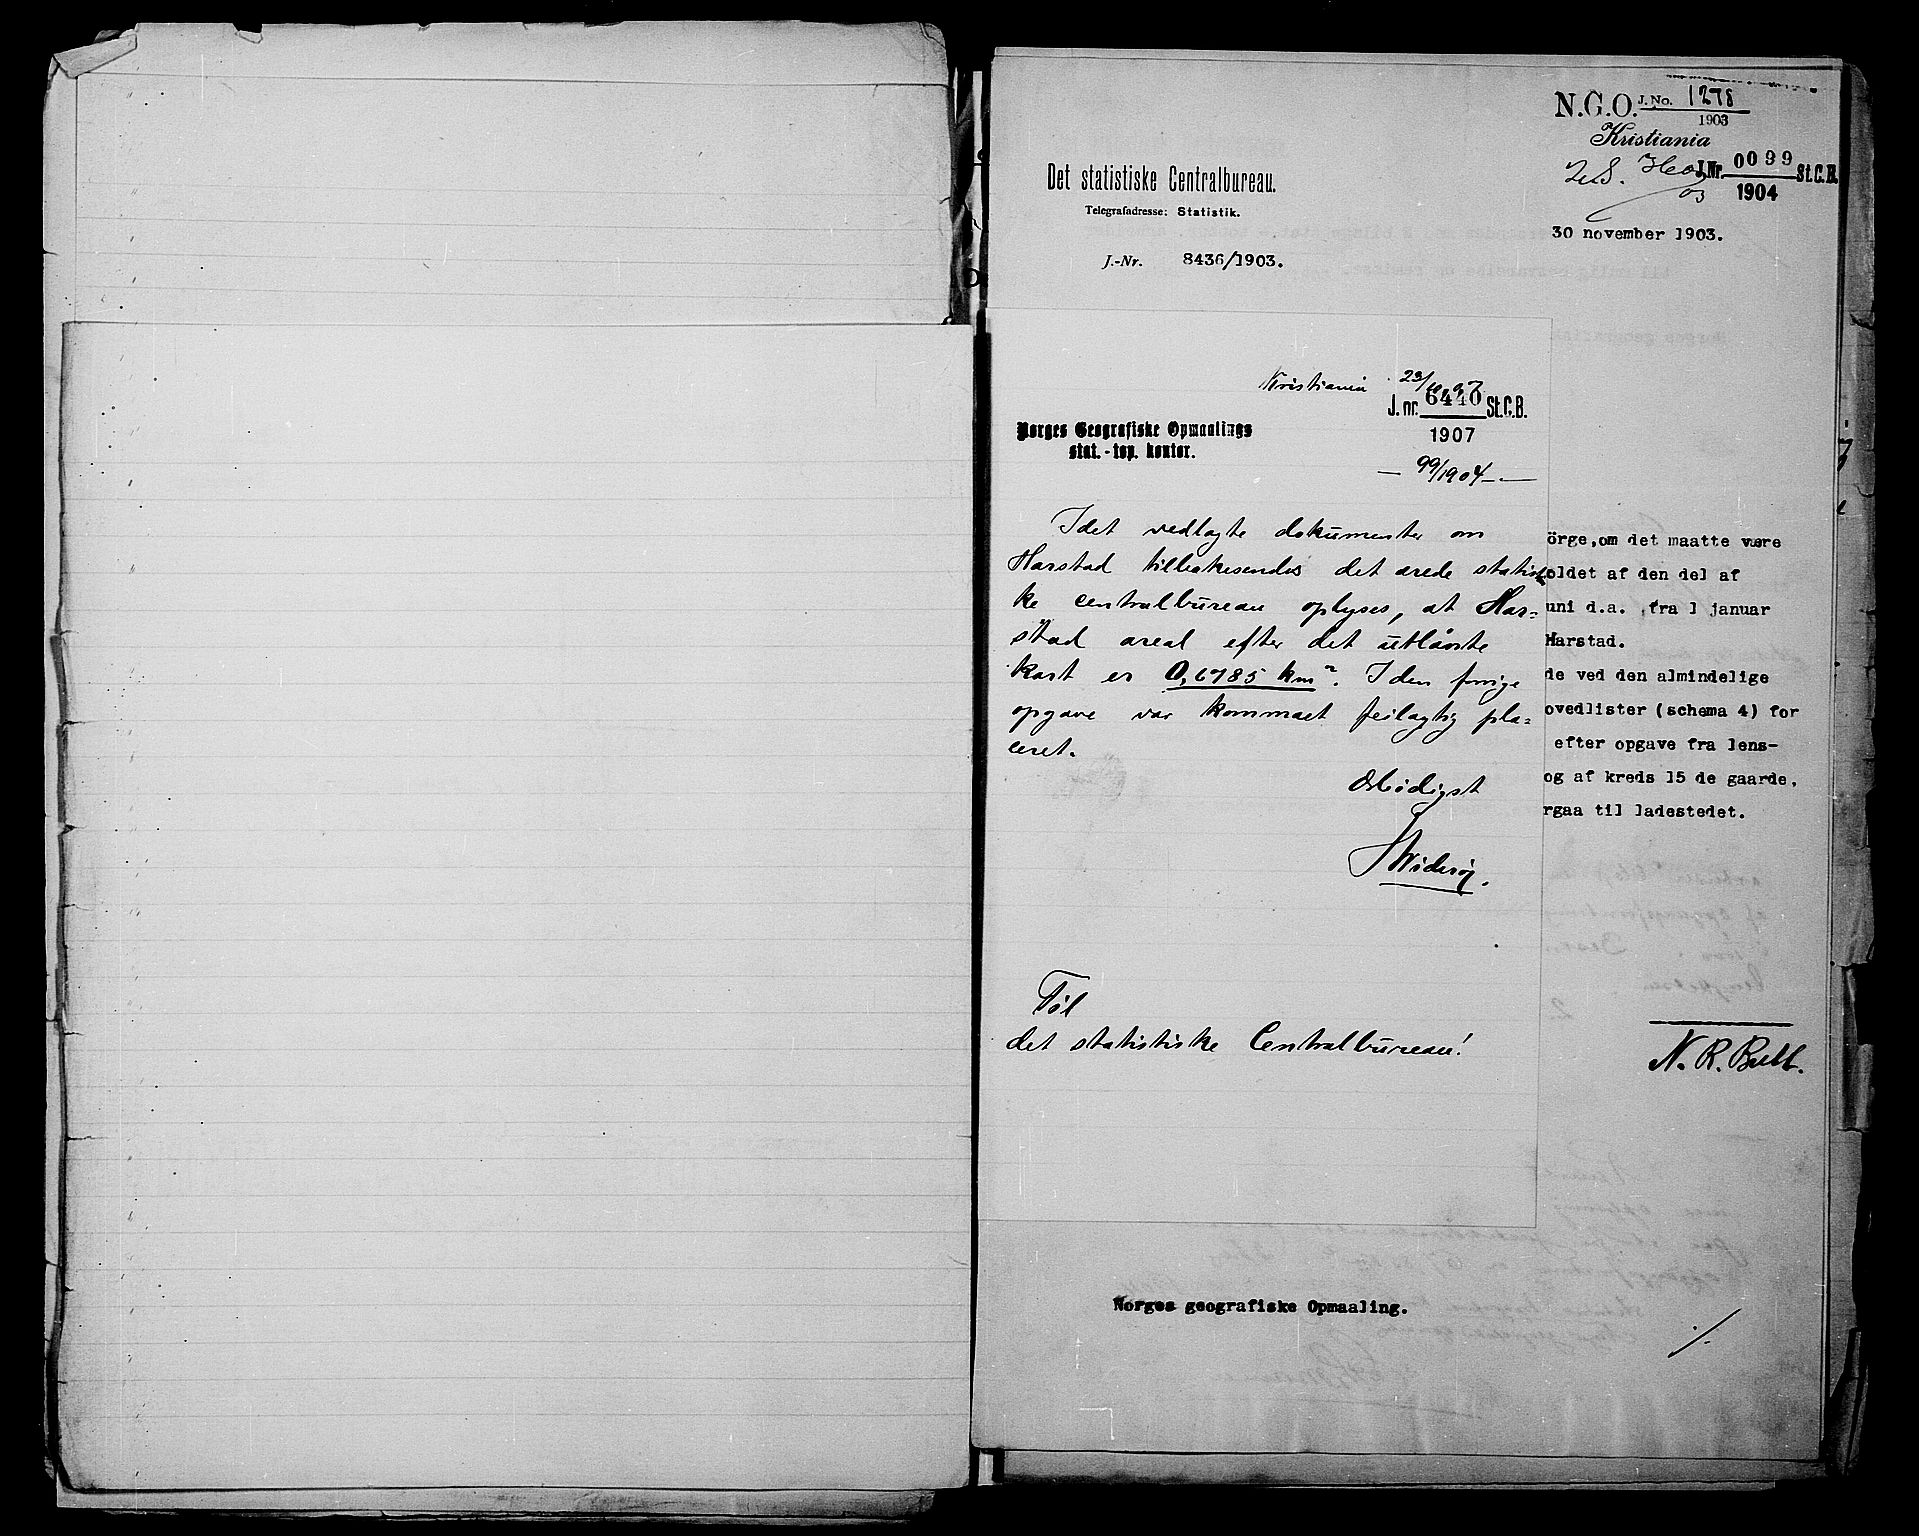 N.G.O. J. No. 1278
1903
Kristiania
J.Nr. 0099 St.C.B.
1904
Det statistiske Centralbureau.
Telegrafadresse: Statistik.
30 november 1903.
J.-Nr. 8436/1903.
Kristiania 23/
J. nr. 6440 St.C.B.
1907
Norges Geografiske Opmaalings
stat.-top. kontor.
— 99/1904 —
Idet vedlagte dokumenter om
Harstad tilbakesendes det ærede statistis
ke centralbureau oplyses, at Har=
stad areal efter det utlånte
kart er 0,6785 km². I den forrige
opgave var kommaet feilagtig pla=
ceret.
Ærbødigst
Widerøe.
Til
det statistiske Centralbureau!
örge, om det maatte være
oldet af den del af
uni d.a. fra 1 januar
Harstad.
de ved den almindelige
ovedlister (schema 4) for
efter opgave fra lens-
og af kreds 15 de gaarde,
rgaa til ladestedet.
N. R. Bull.
Norges geografiske Opmaaling.